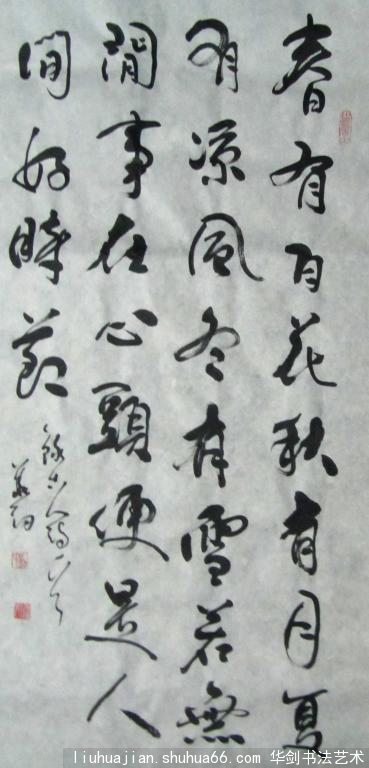 春有百花秋有月夏
有凉風冬有雪若無
閒事在心頭便是人
間好時節
錄古人詩一首
liuhuajian.shuhua66.com 华剑书法艺术